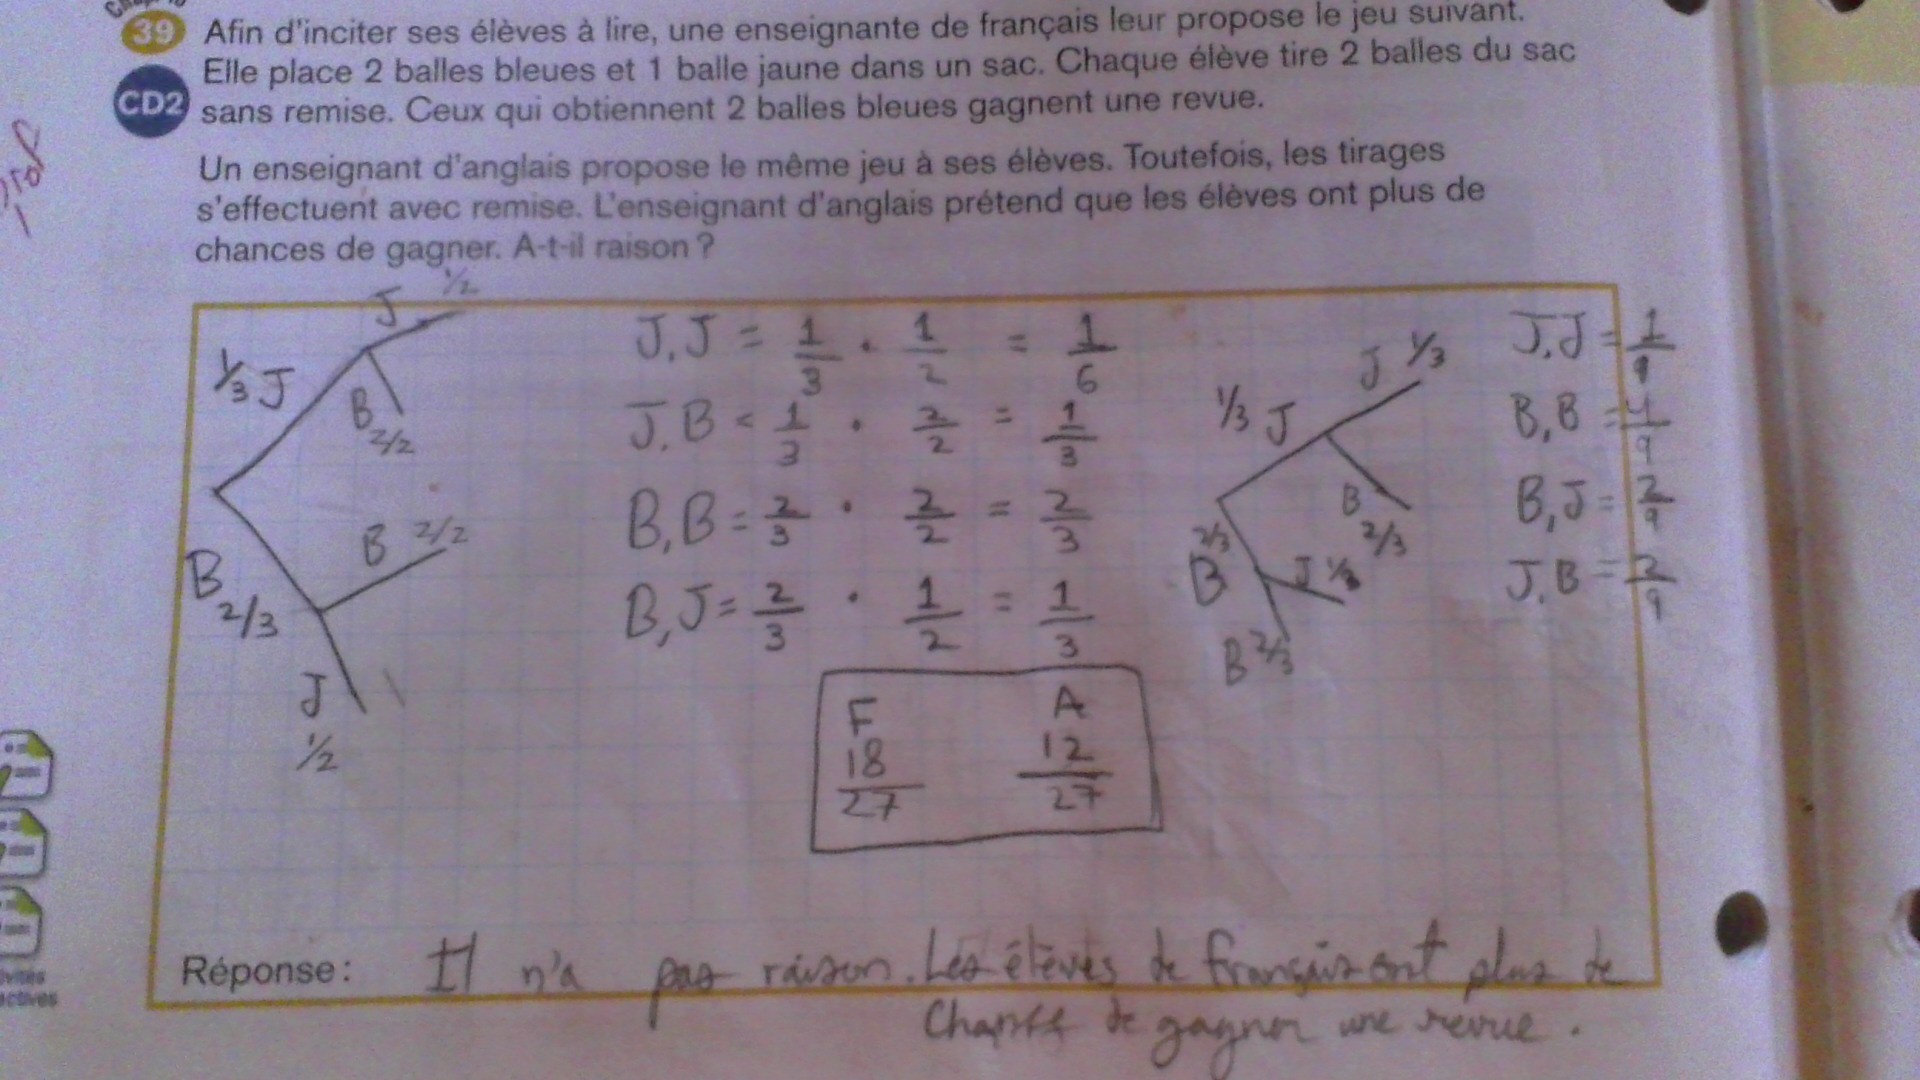 39 Afin d'inciter ses élèves à lire, une enseignante de français leur propose le jeu suivant.
Elle place 2 balles bleues et 1 balle jaune dans un sac. Chaque élève tire 2 balles du sac
CD2 sans remise. Ceux qui obtiennent 2 balles bleues gagnent une revue.
Un enseignant d'anglais propose le même jeu à ses élèves. Toutefois, les tirages
s'effectuent avec remise. L'enseignant d'anglais prétend que les élèves ont plus de
chances de gagner. A-t-il raison ?
J 1/2
1/3 J
B 2/2
B 2/2
B 2/3
J
1/2
J,J = 1/3 · 1/2 = 1/6
J,B = 1/3 · 2/2 = 1/3
B,B = 2/3 · 2/2 = 2/3
B,J = 2/3 · 1/2 = 1/3
J 1/3
1/3 J
B 2/3
2/3 B
J 1/3
B 2/3
J,J = 1/9
B,B = 4/9
B,J = 2/9
J,B = 2/9
F A
18/27 12/27
Réponse : Il n'a pas raison. Les élèves de français ont plus de
chance de gagner une revue.